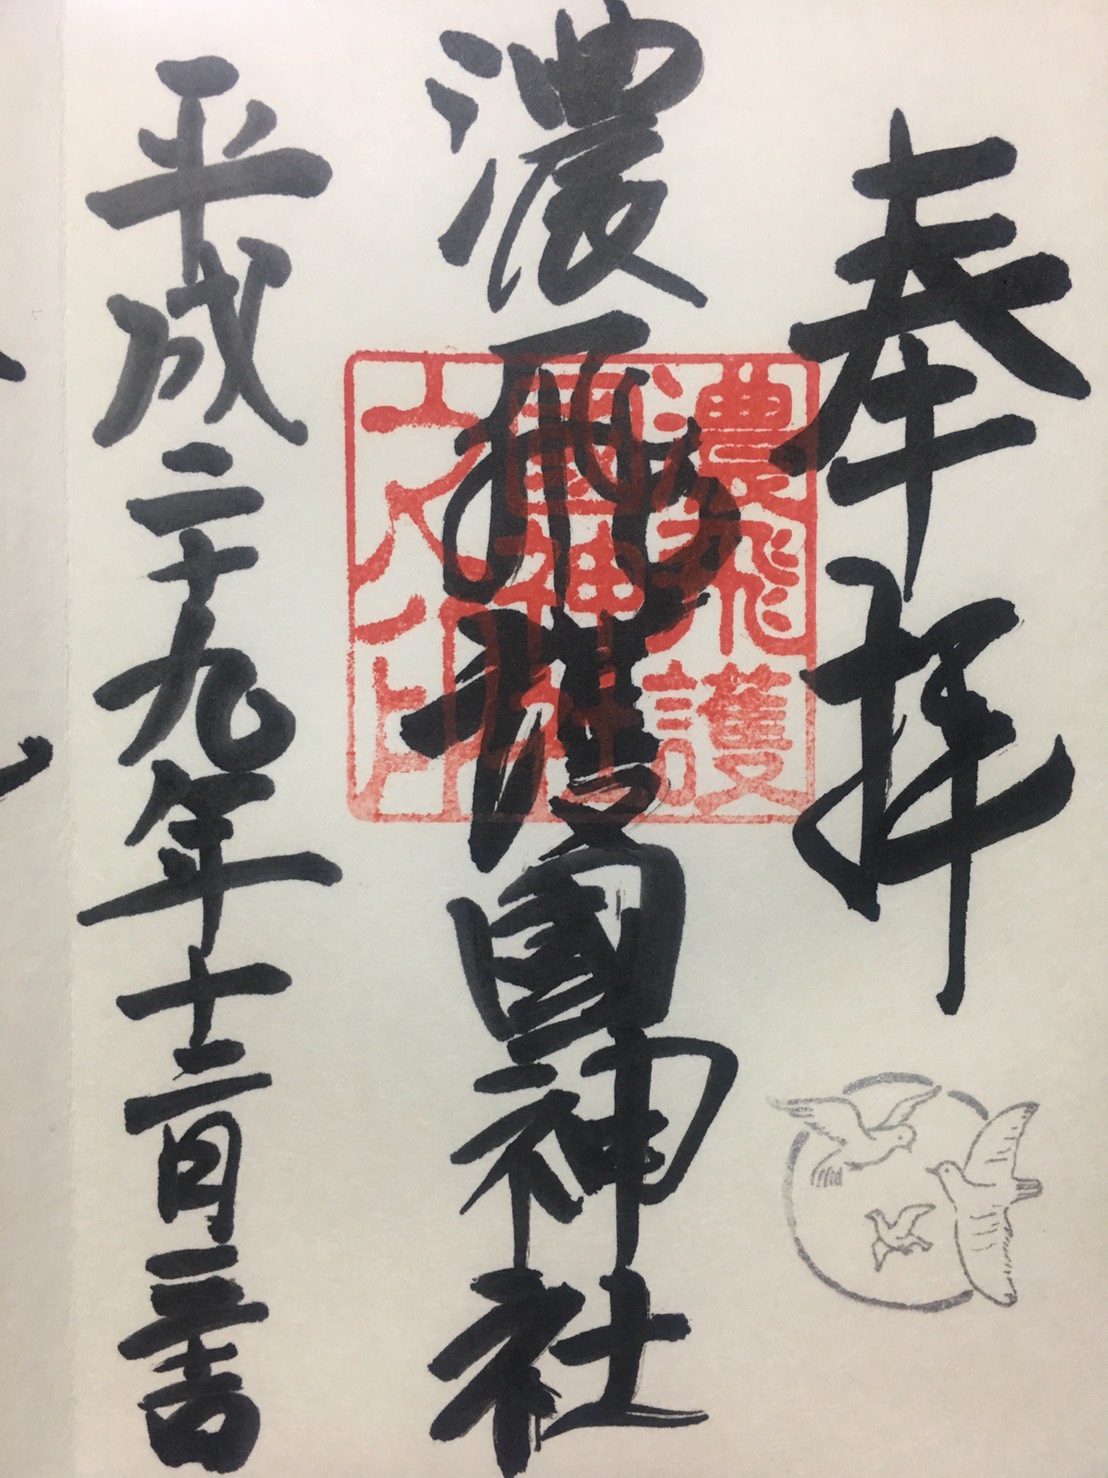 奉拝
濃飛護國神社
濃飛護
國神社
之印
平成二十九年十二月二十三日